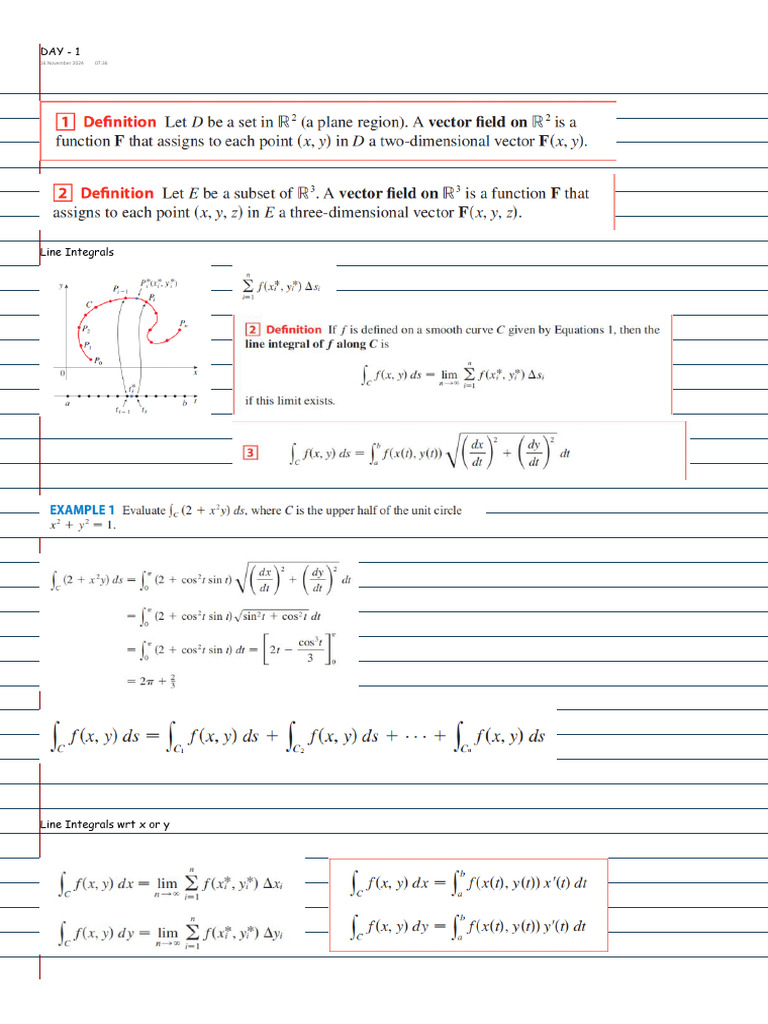 DAY - 1
16 November 2024 07:36
1 Definition Let D be a set in ℝ² (a plane region). A vector field on ℝ² is a
function F that assigns to each point (x, y) in D a two-dimensional vector F(x, y).
2 Definition Let E be a subset of ℝ³. A vector field on ℝ³ is a function F that
assigns to each point (x, y, z) in E a three-dimensional vector F(x, y, z).
Line Integrals
y C P₀ P₁ P₂ Pᵢ₋₁ Pᵢ*(xᵢ*, yᵢ*) Pᵢ Pₙ
0 x
tᵢ*
a tᵢ₋₁ tᵢ b t
∑ᵢ₌₁ⁿ f(xᵢ*, yᵢ*) Δsᵢ
2 Definition If f is defined on a smooth curve C given by Equations 1, then the
line integral of f along C is
∫_C f(x, y) ds = lim_{n→∞} ∑ᵢ₌₁ⁿ f(xᵢ*, yᵢ*) Δsᵢ
if this limit exists.
3 ∫_C f(x, y) ds = ∫ₐᵇ f(x(t), y(t)) √((dx/dt)² + (dy/dt)²) dt
EXAMPLE 1 Evaluate ∫_C (2 + x²y) ds, where C is the upper half of the unit circle
x² + y² = 1.
∫_C (2 + x²y) ds = ∫₀^π (2 + cos²t sin t) √((dx/dt)² + (dy/dt)²) dt
= ∫₀^π (2 + cos²t sin t) √(sin²t + cos²t) dt
= ∫₀^π (2 + cos²t sin t) dt = [2t − cos³t/3]₀^π
= 2π + 2/3
∫_C f(x, y) ds = ∫_C₁ f(x, y) ds + ∫_C₂ f(x, y) ds + · · · + ∫_Cₙ f(x, y) ds
Line Integrals wrt x or y
∫_C f(x, y) dx = lim_{n→∞} ∑ᵢ₌₁ⁿ f(xᵢ*, yᵢ*) Δxᵢ
∫_C f(x, y) dy = lim_{n→∞} ∑ᵢ₌₁ⁿ f(xᵢ*, yᵢ*) Δyᵢ
∫_C f(x, y) dx = ∫ₐᵇ f(x(t), y(t)) x′(t) dt
∫_C f(x, y) dy = ∫ₐᵇ f(x(t), y(t)) y′(t) dt